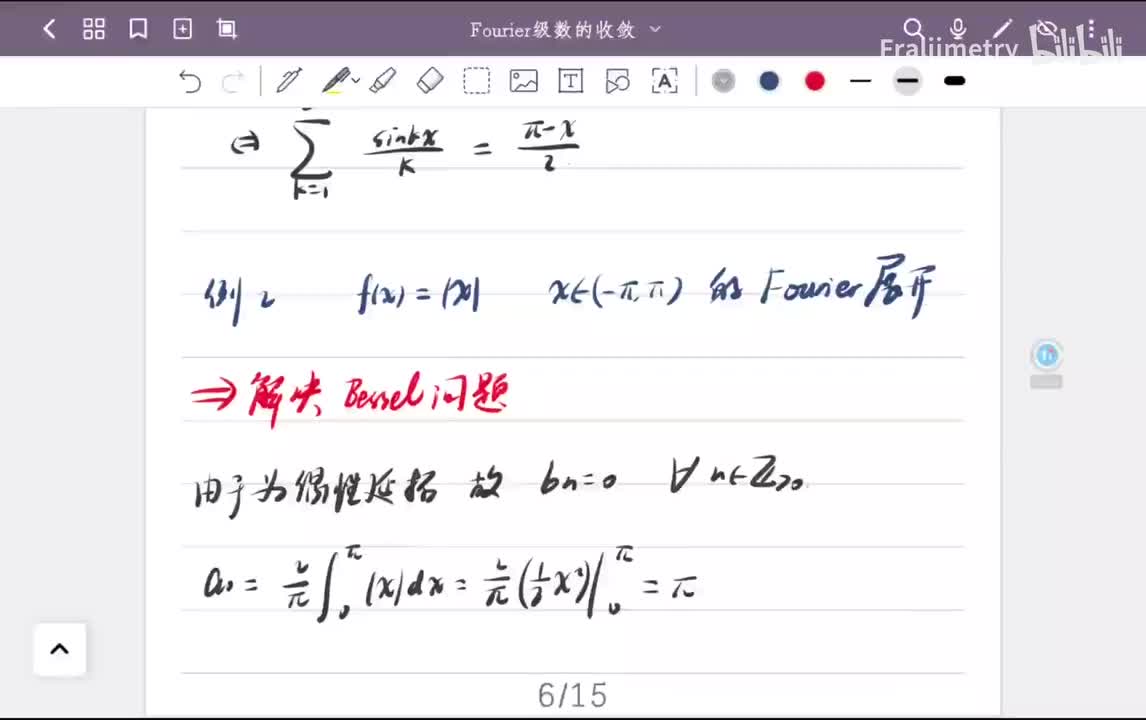 Fourier级数的收敛
Fraljimetry bilibili
⇔ ∑_{k=1} sinkx/k = (π-x)/2
例2 f(x)=|x| x∈(-π,π) 的 Fourier展开
⇒ 解决 Bessel问题
由于为偶性延拓 故 bn=0 ∀n∈ℤ>0.
a₀ = 2/π ∫₀^π |x|dx = 2/π (1/2 x²)|₀^π = π
6/15